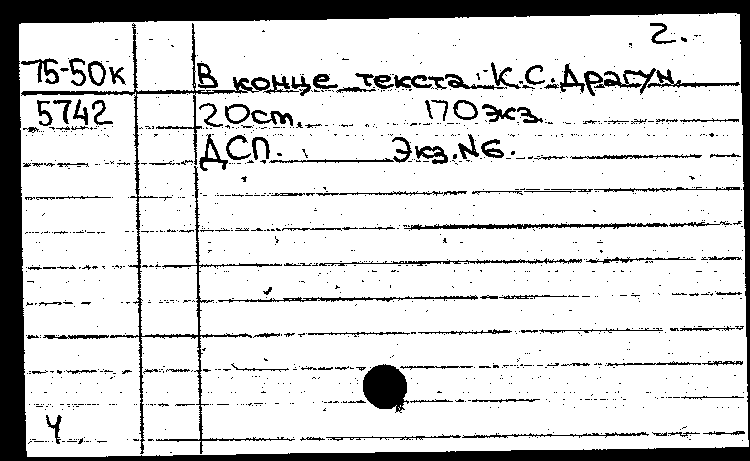 2.
75-50к В конце текста: К.С.Драгун.
5742 20 ст. 170 экз.
ДСП. Экз.N6.
Ч